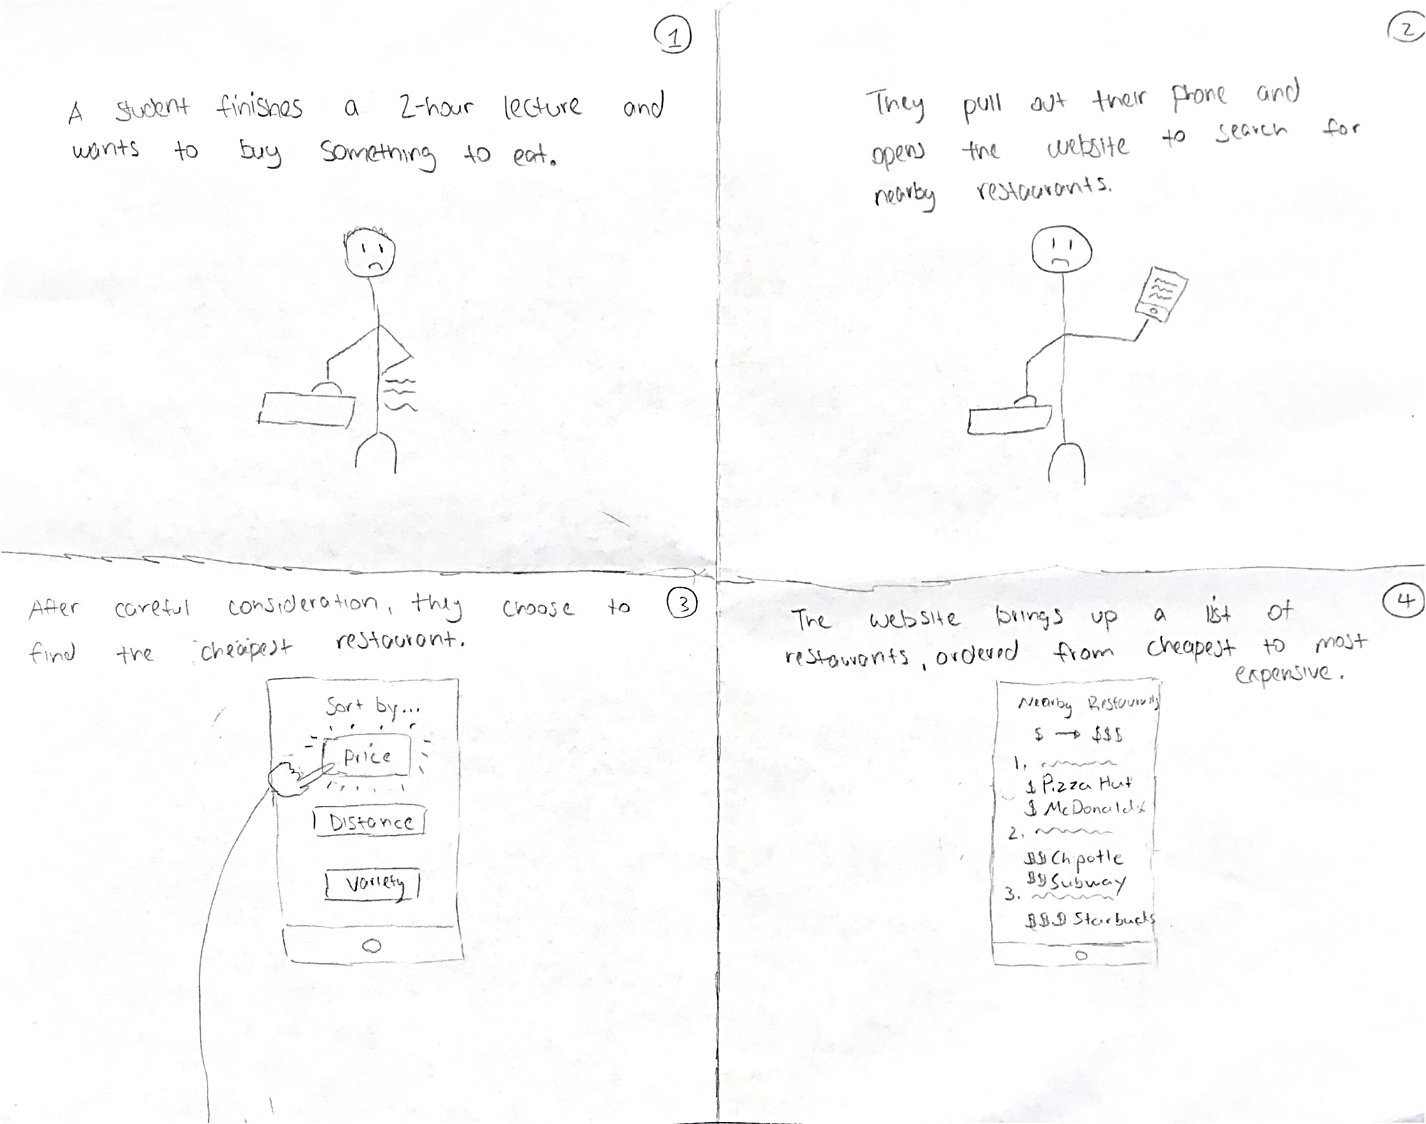 1
A student finishes a 2-hour lecture and
wants to buy something to eat.
2
They pull out their phone and
opens the website to search for
nearby restaurants.
3
After careful consideration, they choose to
find the cheapest restaurant.
Sort by...
Price
Distance
Variety
4
The website brings up a list of
restaurants, ordered from cheapest to most
expensive.
Nearby Restaurants
$ → $$$
1.
$ Pizza Hut
$ McDonald's
2.
$$ Chipotle
$$ Subway
3.
$$$ Starbucks